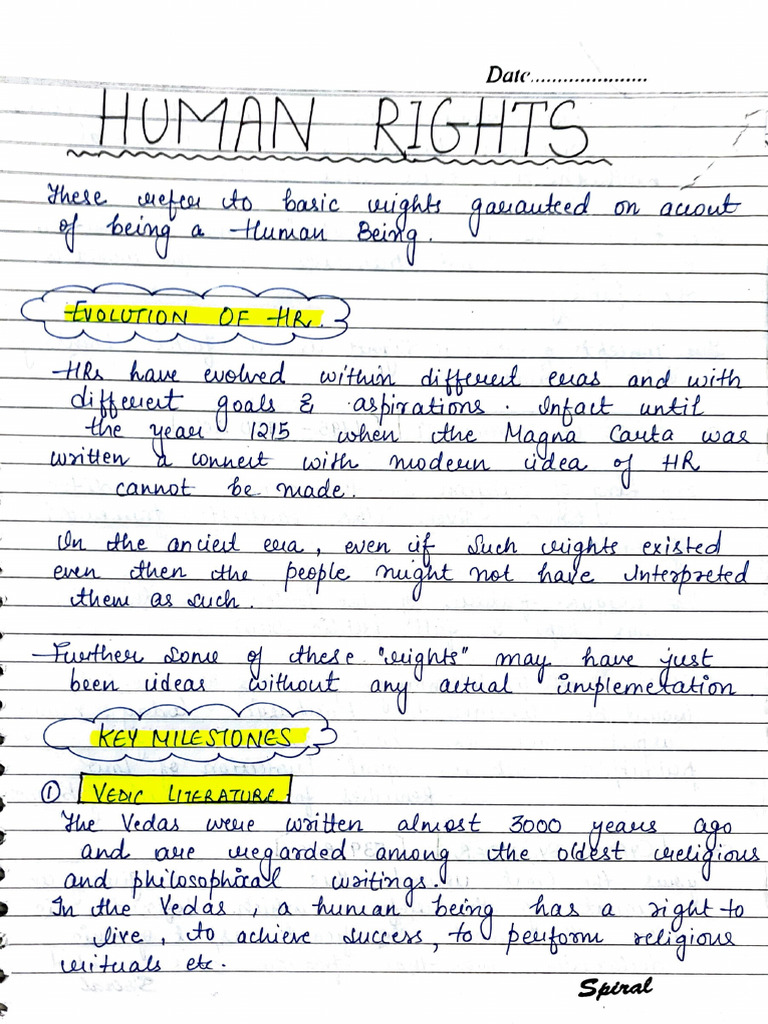 Date.....................
HUMAN RIGHTS
These refer to basic rights garauteed on accout
of being a Human Being.
EVOLUTION OF HR.
HRs have evolved within different eras and with
different goals & aspirations. Infact until
the year 1215 when the Magna Carta was
written a connect with modern idea of HR
cannot be made.
In the ancient era, even if such rights existed
even then the people might not have interpreted
them as such.
Further some of these "rights" may have just
been ideas without any actual implemetation
KEY MILESTONES
① VEDIC LITERATURE.
The Vedas were written almost 3000 years ago
and are regarded among the oldest religious
and philosophical writings.
In the Vedas, a human being has a right to
live, to achieve success, to perform religious
rituals etc.
Spiral